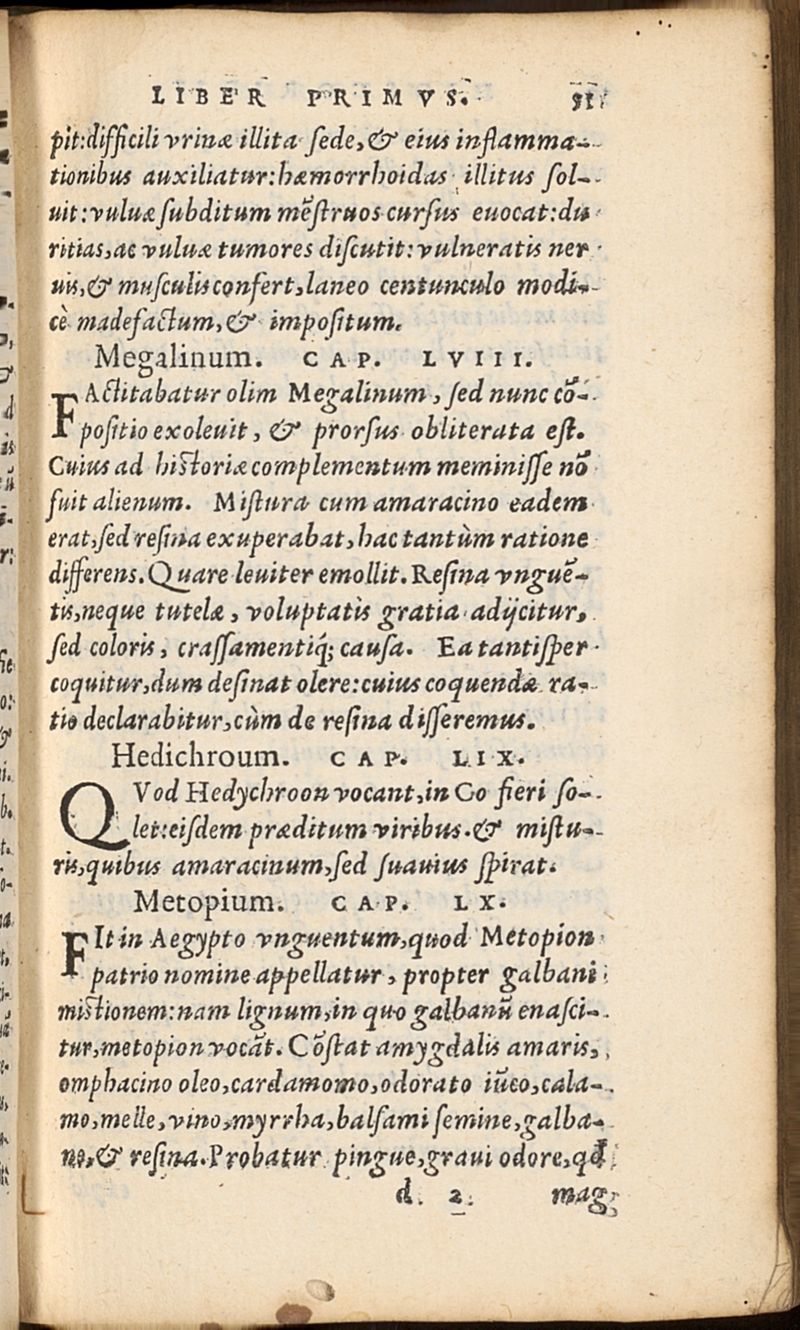 LIBER PRIMVS. 51
pit:difficili vrinæ illita sede,& eius inflamma-
tionibus auxiliatur:hæmorrhoidas illitus sol-
uit:vuluæ subditum mẽstruos cursus euocat:du
ritias,ac vuluæ tumores discutit:vulneratis ner
uis,& musculis confert,laneo centunculo modi-
cè madefactum,& impositum.
Megalinum. CAP. LVIII.
FActitabatur olim Megalinum, sed nunc cõ-
positio exoleuit, & prorsus obliterata est.
Cuius ad historiæ complementum meminisse nõ
fuit alienum. Mistura cum amaracino eadem
erat,sed resina exuperabat,hac tantùm ratione
differens.Quare leuiter emollit.Resina vnguẽ-
tis,neque tutelæ, voluptatìs gratia adijcitur,
sed coloris, crassamentiq́; causa. Ea tantisper
coquitur,dum desinat olere:cuius coquendæ ra-
tio declarabitur,cùm de resina disseremus.
Hedichroum. CAP. LIX.
QVod Hedychroon vocant,in Co fieri so-
let:eisdem præditum viribus.& mistu-
ris,quibus amaracinum,sed suauius spirat.
Metopium. CAP. LX.
FIt in Aegypto vnguentum,quod Metopion
patrio nomine appellatur, propter galbani
mistionem:nam lignum,in quo galbanũ enasci-
tur,metopion vocãt. Cõstat amygdalis amaris,
omphacino oleo,cardamomo,odorato iũco,cala-
mo,melle,vino,myrrha,balsami semine,galba-
no,& resina.Probatur pingue,graui odore,qđ
d. 2. mag